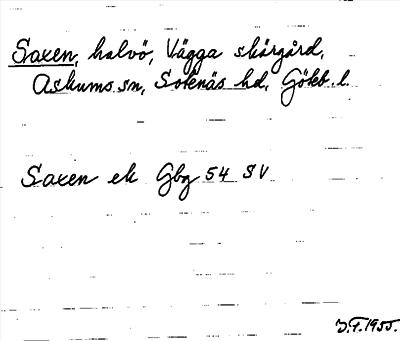 Saxen, halvö, Vägga skärgård,
Askums sn, Sotenäs hd, Gökb. l.
Saxen ek Gbg 54 SV
J.F. 1955.